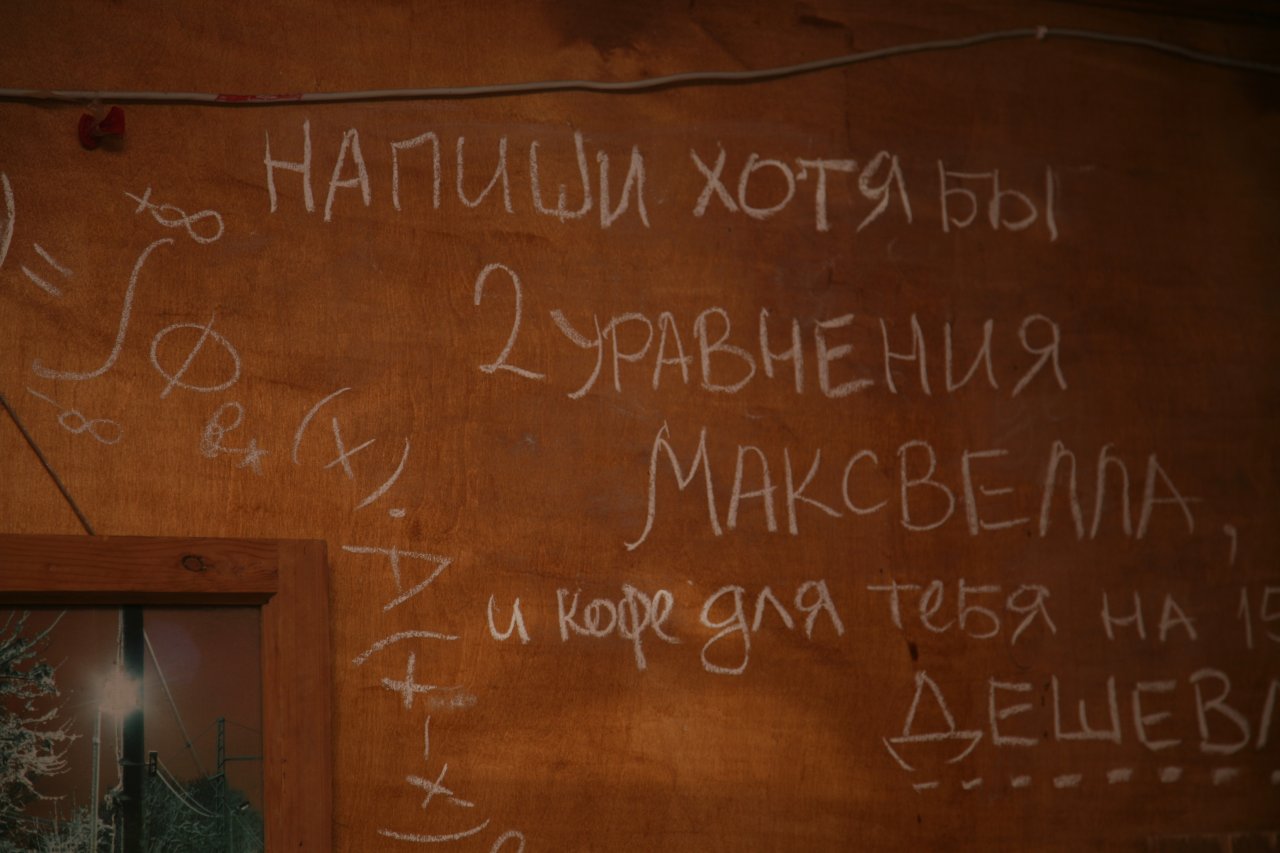 НАПИШИ ХОТЯ БЫ
2 УРАВНЕНИЯ
МАКСВЕЛЛА,
и кофе для тебя на 15
ДЕШЕВЛ
) = ∫ +∞ -∞ Ø e* (x) · D (t - x)